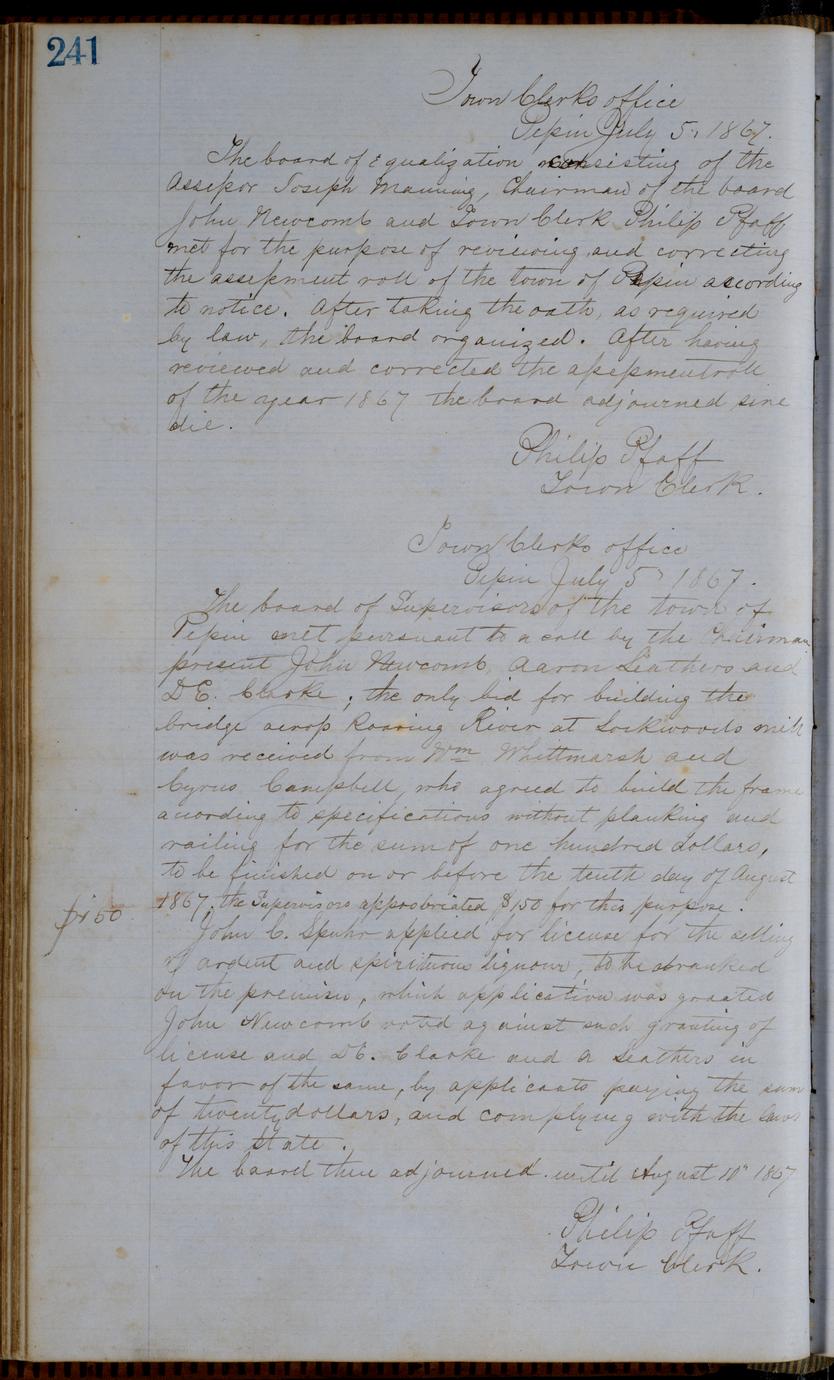 241
Town Clerks office
Pepin July 5, 1867.
The board of equalization consisting of the
Assessor Joseph Manning, Chairman of the board
John Newcomb and Town Clerk Philip Pfaff
met for the purpose of reviewing and correcting
the assessment roll of the town of Pepin according
to notice. After taking the oath, as required
by law, the board organized. After having
reviewed and corrected the assessment roll
of the year 1867 the board adjourned sine
die.
Philip Pfaff
Town Clerk.
Town Clerks office
Pepin July 5" 1867.
The board of Supervisors of the town of
Pepin met pursuant to a call by the Chairman
present John Newcomb, Aaron Leathers and
D.E. Clarke; the only bid for building the
bridge across Roaring River at Lockwoods mill
was received from Wm Whittmarsh and
Cyrus Campbell, who agreed to build the frame
according to specifications without planking and
railing for the sum of one hundred dollars,
to be finished on or before the tenth day of August
1867, the Supervisors approbriated $150 for this purpose.
$150
John C. Spuhr applied for license for the selling
of ardent and spirituous liquours, to be dranked
on the premises, which application was granted
John Newcomb voted against such granting of
license and D.E. Clarke and A Leathers in
favor of the same, by applicants paying the sum
of twenty dollars, and complying with the laws
of this State.
The board then adjourned until August 10" 1867
Philip Pfaff
Town Clerk.